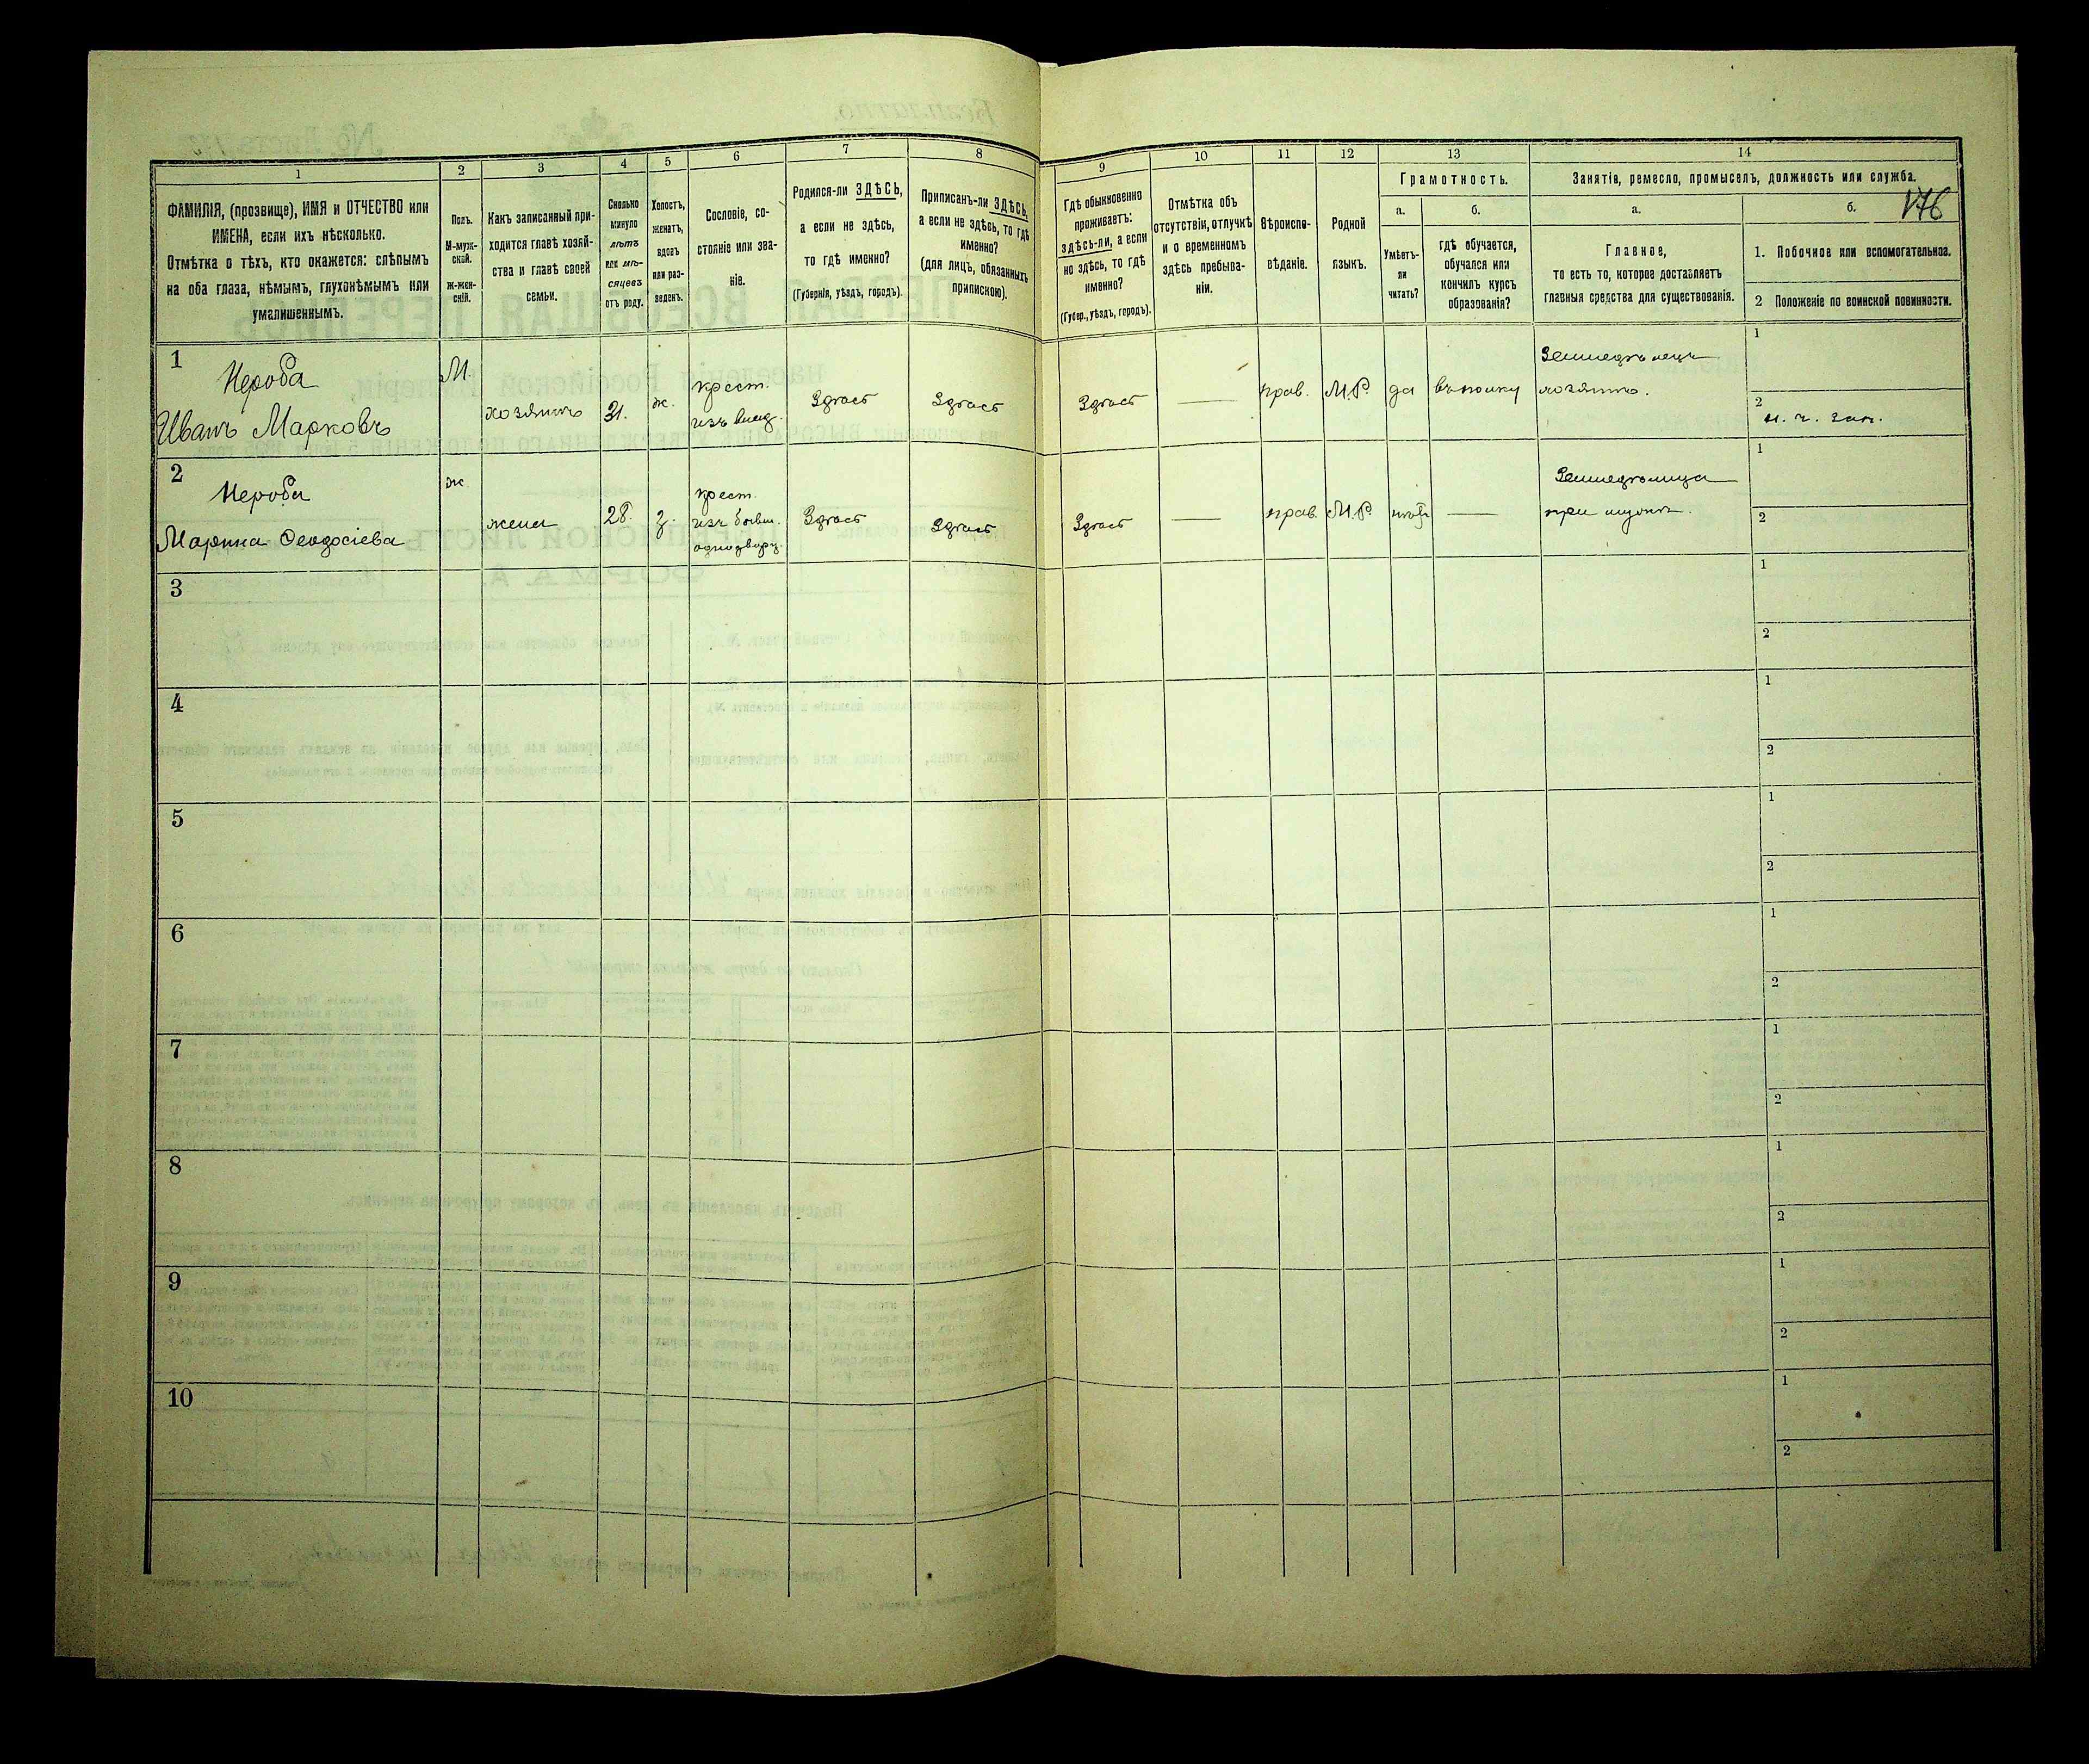 1
2
3
4
5
6
7
8
9
10
11
12
13
14
ФАМИЛІЯ, (прозвище), ИМЯ и ОТЧЕСТВО или
ИМЕНА, если ихъ нѣсколько.
Отмѣтка о тѣхъ, кто окажется: слѣпымъ
на оба глаза, нѣмымъ, глухонѣмымъ или
умалишеннымъ.
Полъ.
М-муж-
ской.
Ж-жен-
скій.
Какъ записанный при-
ходится главѣ хозяй-
ства и главѣ своей
семьи.
Сколько
минуло
лѣтъ
или мѣ-
сяцевъ
отъ роду.
Холостъ,
женатъ,
вдовъ
или раз-
веденъ.
Сословіе, со-
стояніе или зва-
ніе.
Родился-ли ЗДѢСЬ,
а если не здѣсь,
то гдѣ именно?
(Губернія, уѣздъ, городъ).
Приписанъ-ли ЗДѢСЬ,
а если не здѣсь, то гдѣ
именно?
(для лицъ, обязанныхъ
припискою).
Гдѣ обыкновенно
проживаетъ:
здѣсь-ли, а если
не здѣсь, то гдѣ
именно?
(Губер., уѣздъ, городъ).
Отмѣтка объ
отсутствіи, отлучкѣ
и о временномъ
здѣсь пребыва-
ніи.
Вѣроиспо-
вѣданіе.
Родной
языкъ.
Грамотность.
а.
Умѣетъ-
ли
читать?
б.
гдѣ обучается,
обучался или
кончилъ курсъ
образованія?
Занятіе, ремесло, промыселъ, должность или служба.
а.
Главное,
то есть то, которое доставляетъ
главныя средства для существованія.
б.
176
1. Побочное или вспомогательное.
2 Положеніе по воинской повинности.
1
Нероба
Иванъ Марковъ
М.
хозяинъ
31.
ж.
крест.
изъ
Здѣсь
Здѣсь
Здѣсь
—
прав.
М.Р.
да
Земледѣлецъ
хозяинъ.
1
2
2
Нероба
Марина Ѳеодосіева
ж
жена
28.
з.
крест.
изъ бывш.
однодворц.
Здѣсь
Здѣсь
Здѣсь
—
прав.
М.Р.
нѣтъ
—
Земледѣлица
при мужѣ.
1
2
3
1
2
4
1
2
5
1
2
6
1
2
7
1
2
8
1
2
9
1
2
10
1
2